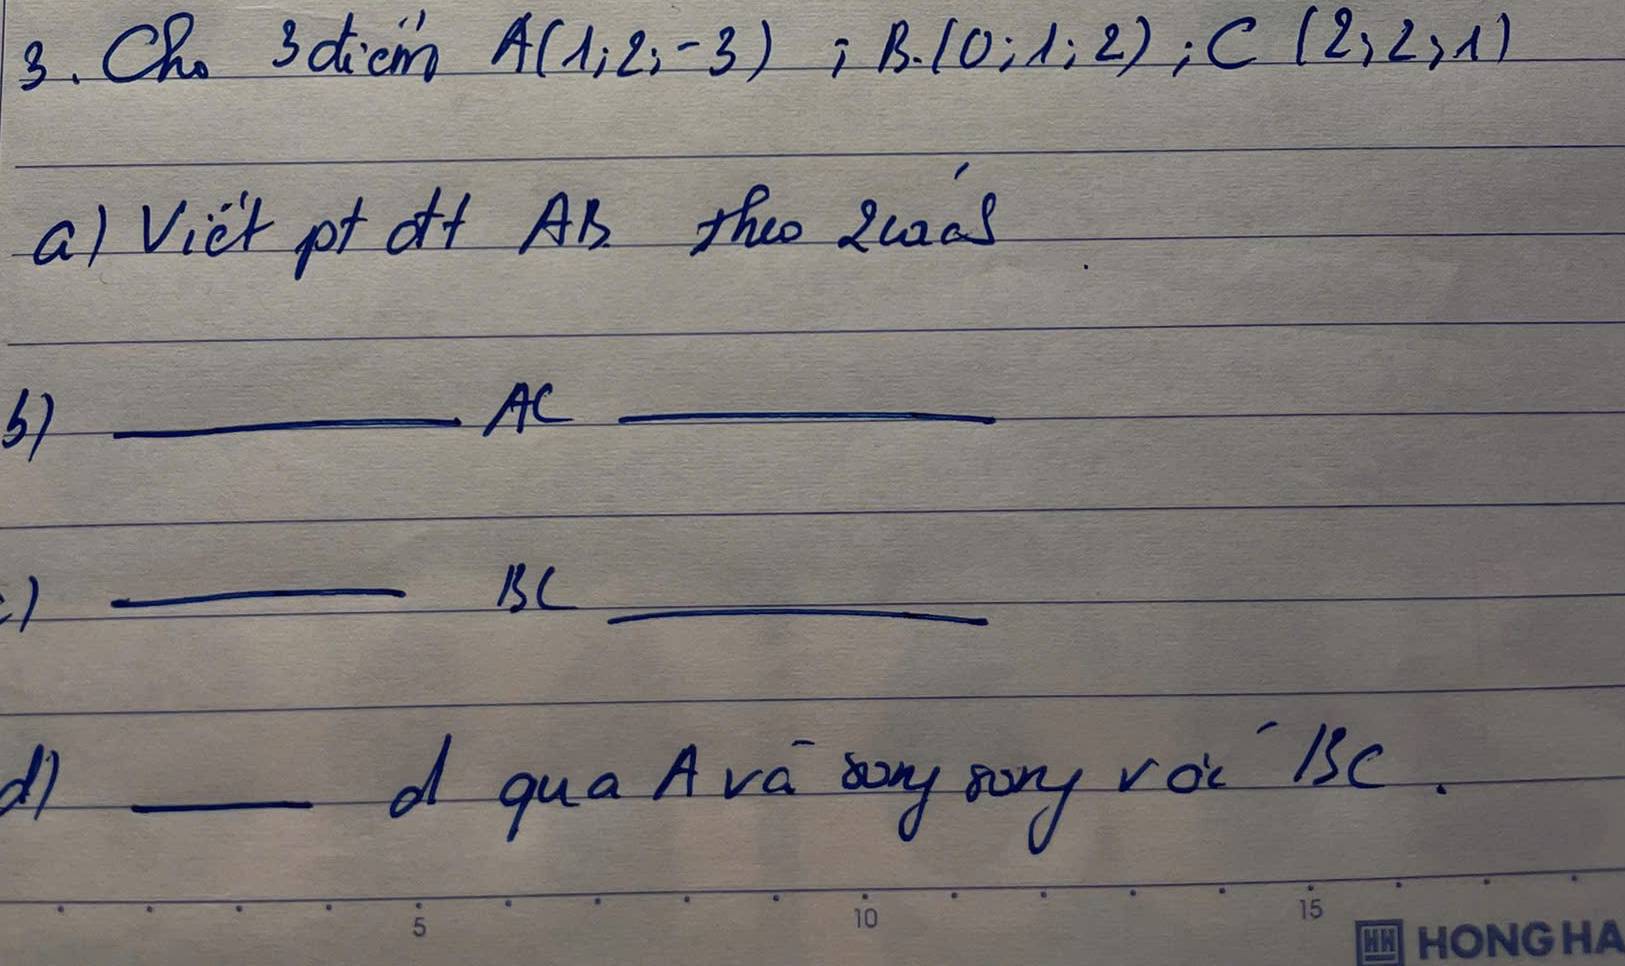 3. Cho 3 điểm A(1;2;-3) ; B.(0;1;2) ; C (2;2;1)
a) Viết pt đt AB theo 2 cách
b) ——— AC ———
c) ——— BC ———
d) ——— d qua A và song song với BC.
5 10 15
HH HONG HA